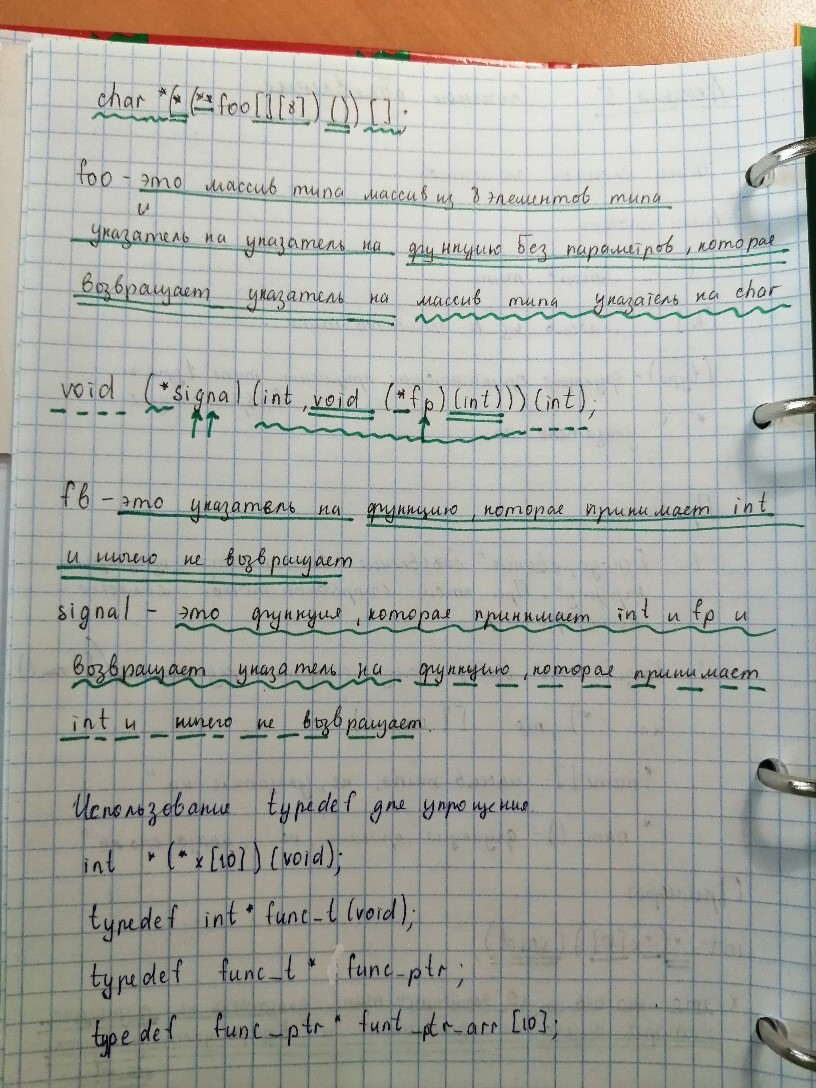 char *(*(**foo[][8])())[];
foo - это массив типа массив из 8 элементов типа
и
указатель на указатель на функцию без параметров, которая
возвращает указатель на массив типа указатель на char
void (*signal(int, void (*fp)(int)))(int);
fb - это указатель на функцию, которая принимает int
и ничего не возвращает
signal - это функция, которая принимает int и fp и
возвращает указатель на функцию, которая принимает
int и ничего не возвращает.
Использование typedef для упрощения
int *(*x[10])(void);
typedef int* func_t(void);
typedef func_t* func_ptr;
typedef func_ptr* funt_ptr_arr[10];